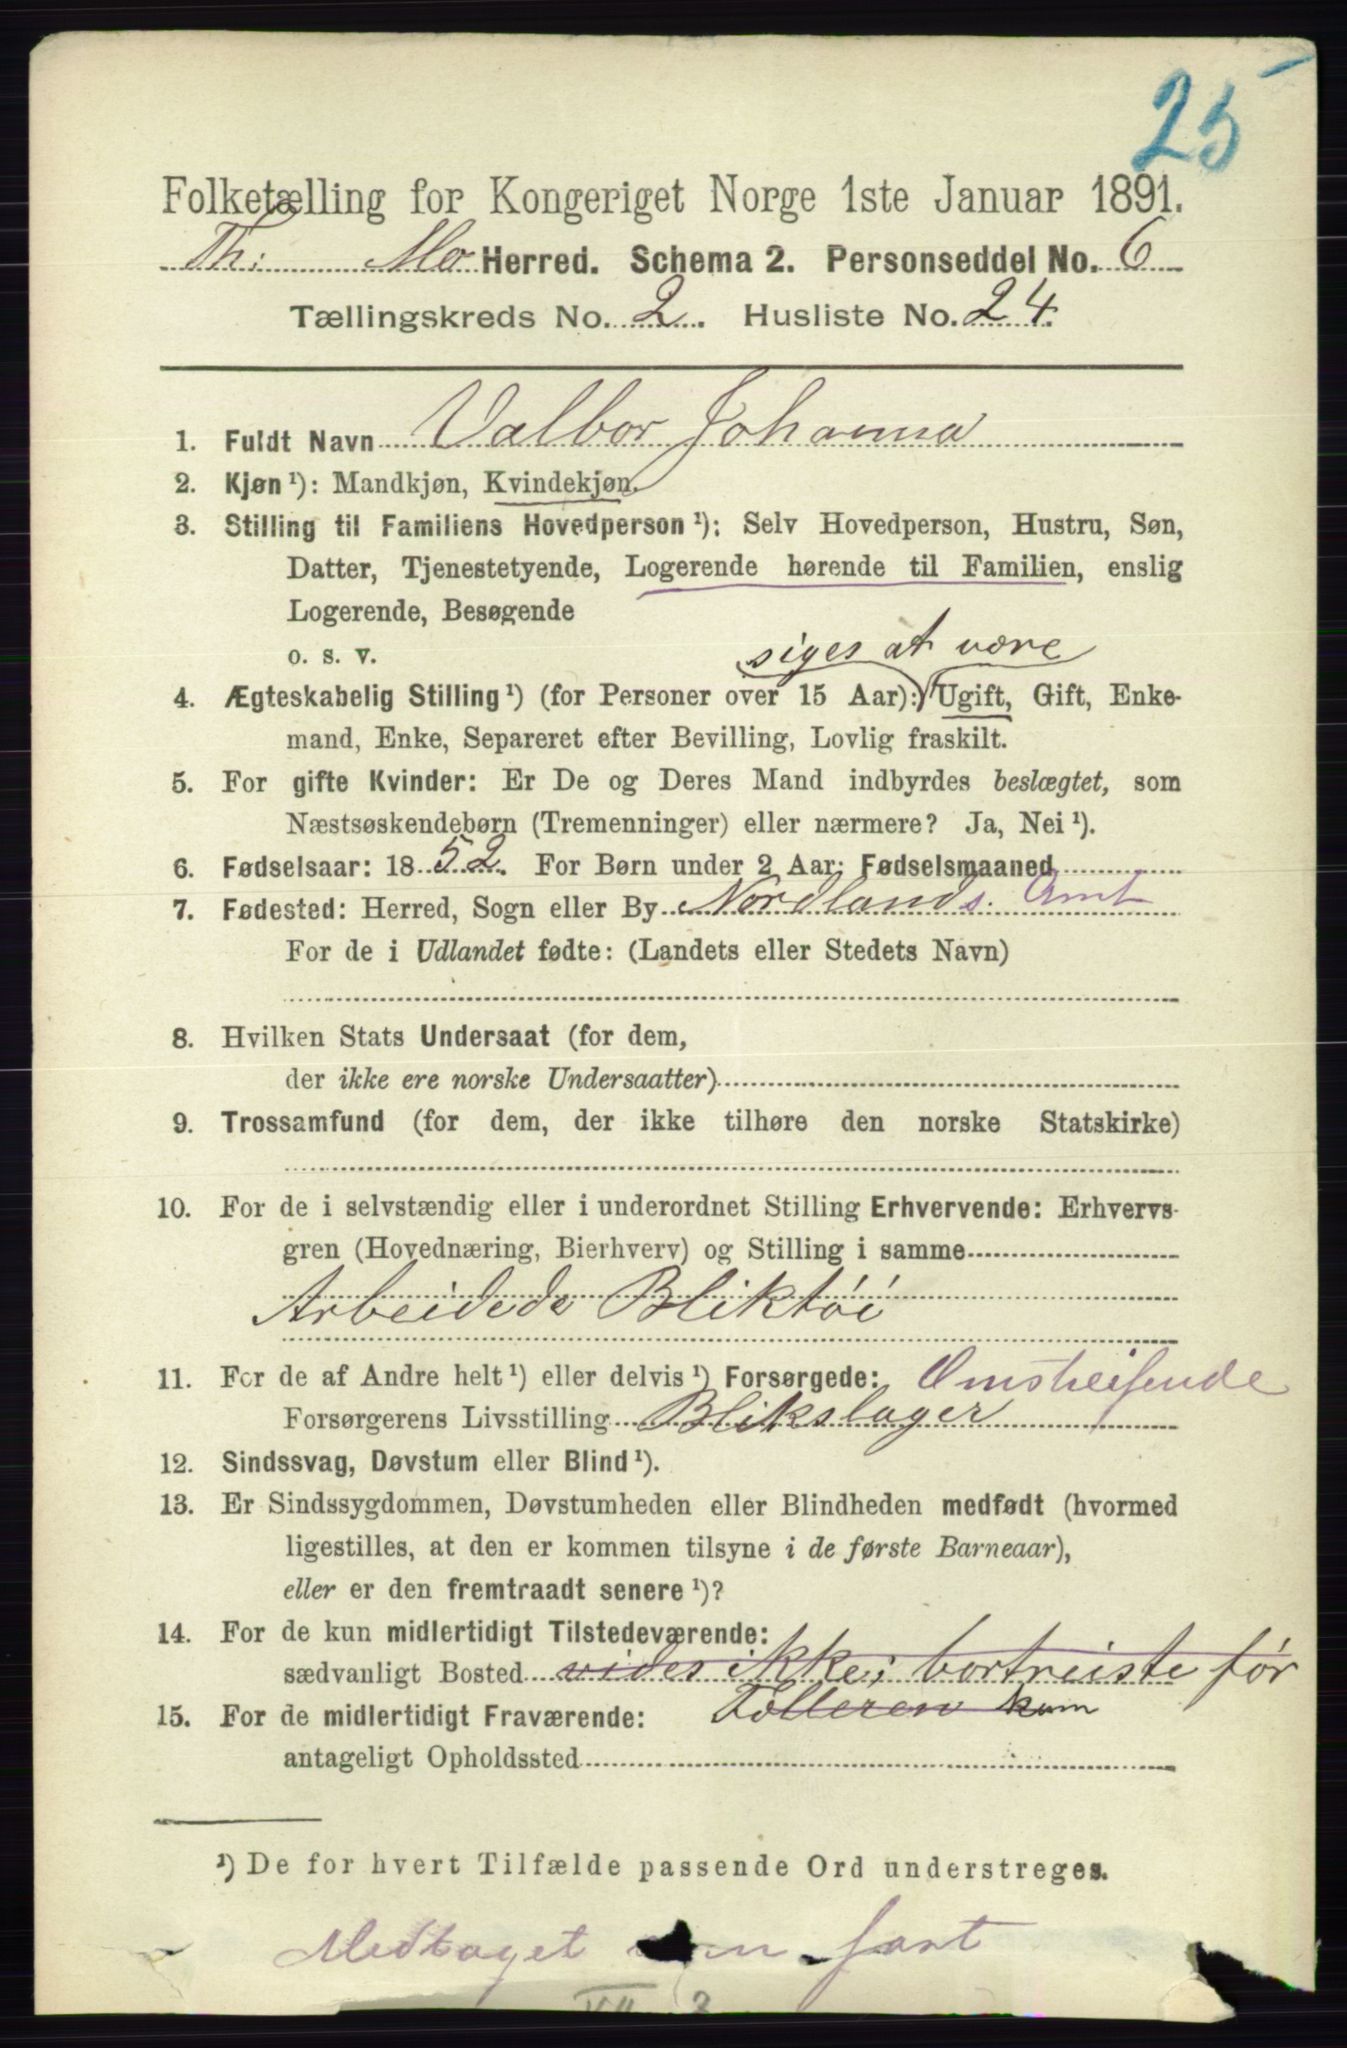 25
Folketælling for Kongeriget Norge 1ste Januar 1891.
Th: Mo Herred. Schema 2. Personseddel No. 6
Tællingskreds No. 2. Husliste No. 24.
1. Fuldt Navn Valbor Johanna
2. Kjøn ¹): Mandkjøn, Kvindekjøn.
3. Stilling til Familiens Hovedperson ¹): Selv Hovedperson, Hustru, Søn,
Datter, Tjenestetyende, Logerende hørende til Familien, enslig
Logerende, Besøgende
o. s. v.
siges at være
4. Ægteskabelig Stilling ¹) (for Personer over 15 Aar): Ugift, Gift, Enke-
mand, Enke, Separeret efter Bevilling, Lovlig fraskilt.
5. For gifte Kvinder: Er De og Deres Mand indbyrdes beslægtet, som
Næstsøskendebørn (Tremenninger) eller nærmere? Ja, Nei ¹).
6. Fødselsaar: 1852. For Børn under 2 Aar: Fødselsmaaned
7. Fødested: Herred, Sogn eller By Nordlands. Amt
For de i Udlandet fødte: (Landets eller Stedets Navn)
8. Hvilken Stats Undersaat (for dem,
der ikke ere norske Undersaatter)
9. Trossamfund (for dem, der ikke tilhøre den norske Statskirke)
10. For de i selvstændig eller i underordnet Stilling Erhvervende: Erhvervs-
gren (Hovednæring, Bierhverv) og Stilling i samme
Arbeidede Bliktöi
11. For de af Andre helt ¹) eller delvis ¹) Forsørgede: Omstreifende
Forsørgerens Livsstilling Blikslager
12. Sindssvag, Døvstum eller Blind ¹).
13. Er Sindssygdommen, Døvstumheden eller Blindheden medfødt (hvormed
ligestilles, at den er kommen tilsyne i de første Barneaar),
eller er den fremtraadt senere ¹)?
14. For de kun midlertidigt Tilstedeværende:
sædvanligt Bosted vides ikke; bortreiste før
15. For de midlertidigt Fraværende: Tølleren kom
antageligt Opholdssted
¹) De for hvert Tilfælde passende Ord understreges.
Medtaget som fast
VII 3